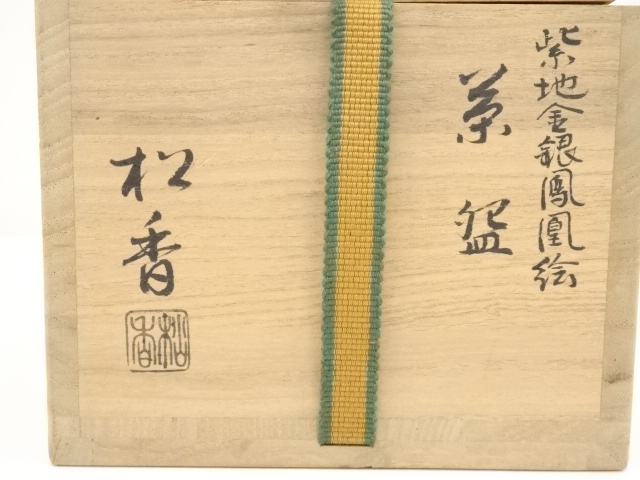 紫地金銀鳳凰絵
茶盌
松香
松香